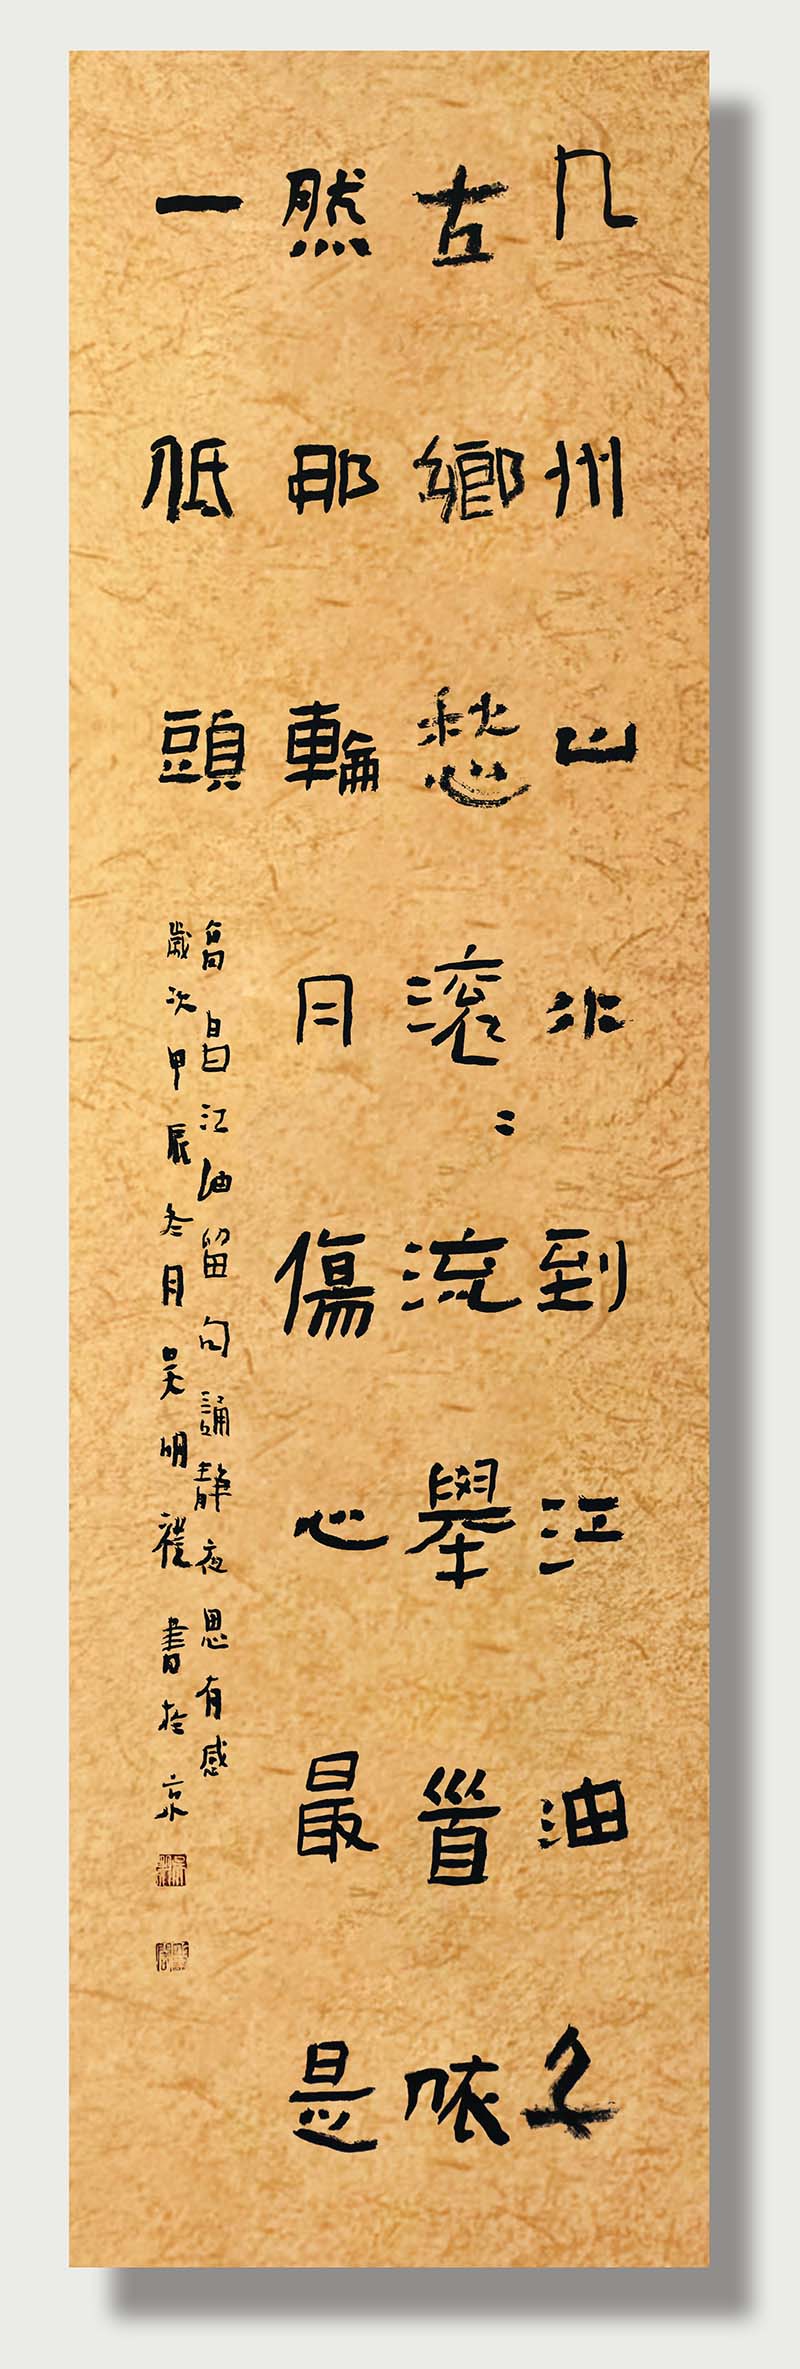 九州山水到江油千
古鄉愁滾〻流舉首依
然那輪月傷心最是
一低頭
高昌江油留句誦靜夜思有感
歲次甲辰冬月吳明禮書於京